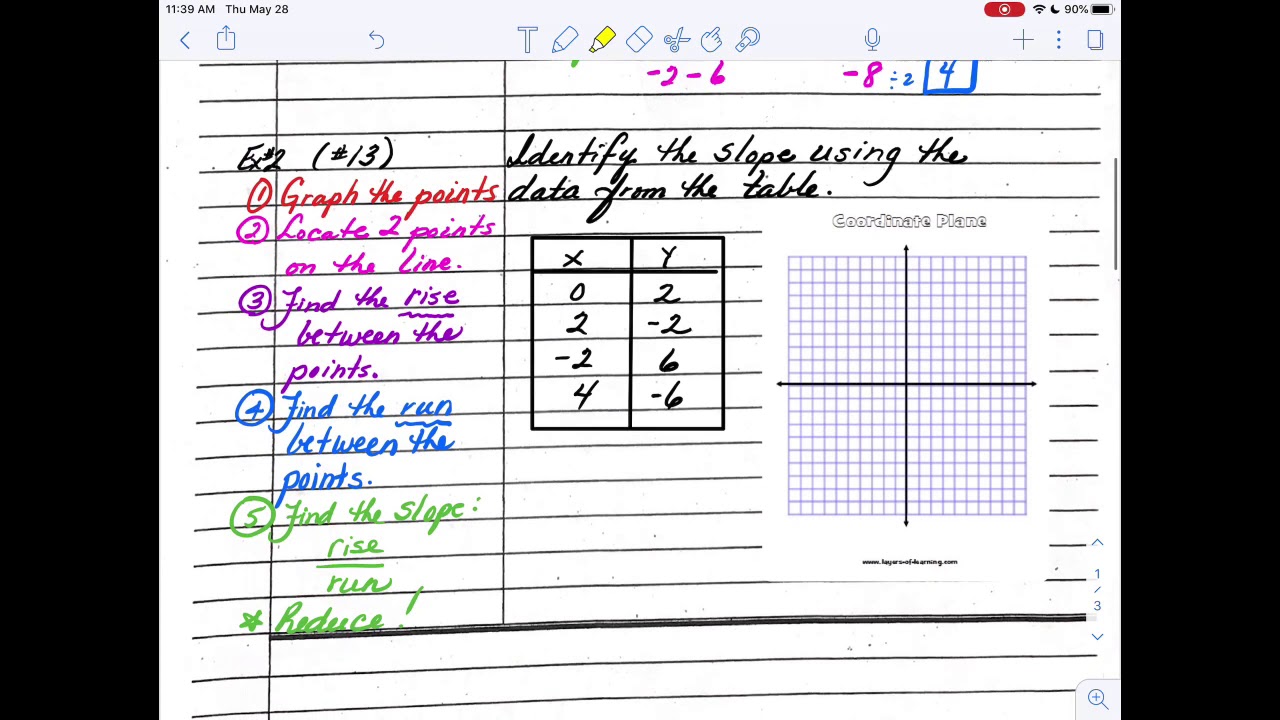 11:39 AM Thu May 28
90%
-2 - 6
-8 ÷2 4
Ex#2 (#13)
Identify the slope using the
data from the table.
① Graph the points
② Locate 2 points
on the line.
③ Find the rise
between the
points.
④ Find the run
between the
points.
⑤ Find the slope:
rise
run
* Reduce!
X Y
0 2
2 -2
-2 6
4 -6
Coordinate Plane
www.layers-of-learning.com
1
/
3